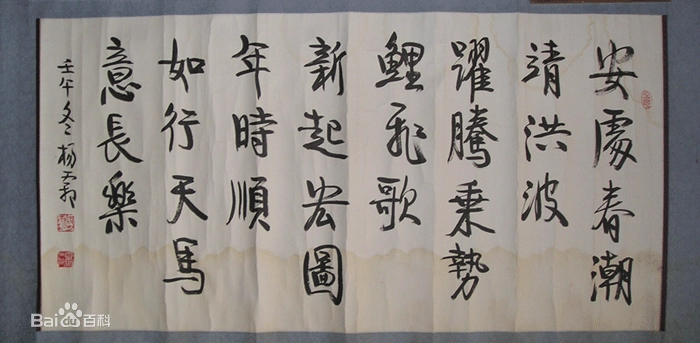 安處春潮
靖洪波
躍騰乘勢
鯉飛歌
新起宏圖
年時順
如行天馬
意長樂
壬午冬 楊
Baidu百科